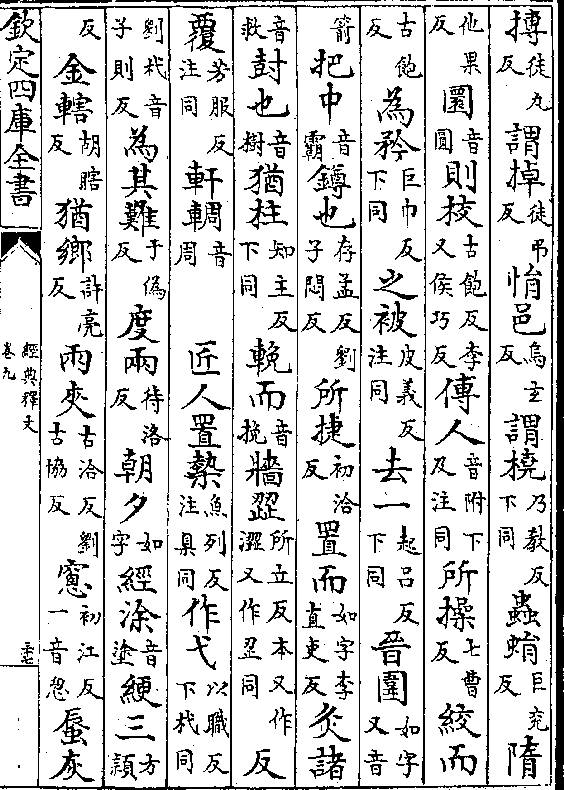 摶徒丸反謂掉徒弔反悁邑烏玄反謂橈乃教反下同蟲蜎巨兖反隋
他果反圜音圓則挍古飽反李又侯巧反傳人音附下及注同所操七曹反絞而
古飽反為矜巨巾反下同之被皮義反注同去一起吕反下同晉圍如字又音
箭把中音霸鐏也存孟反劉子悶反所捷初洽反置而如字李直吏反灸諸
音救尌也音樹猶柱知主反下同輓而音挽牆歰所立反本又作澀又作歰同反
覆芳服反注同軒輖音周匠人置槷魚列反注臬同作弋以職反下杙同
劉杙音子則反為其難于偽反度兩待洛反朝夕如字經涂音塗綆三方穎
反金轄胡瞎反猶鄉許亮反兩夾古洽反劉古協反窻初江反一音怱蜃灰
欽定四庫全書
經典釋文
卷九